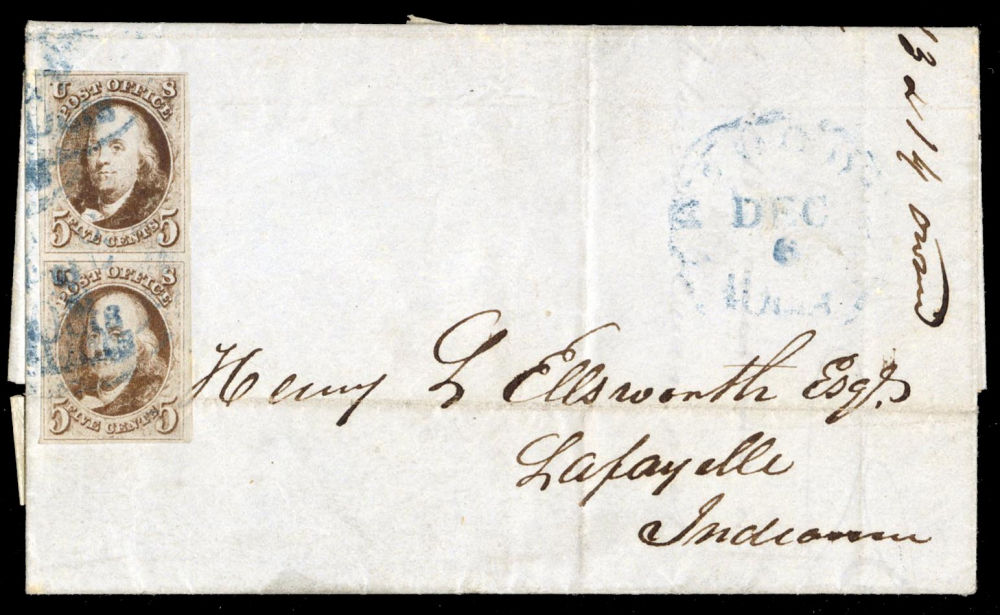 U S
POST OFFICE
5 FIVE CENTS 5
U S
POST OFFICE
5 FIVE CENTS 5
DEC
6
Henry L Ellsworth Esqr.
Lafayette
Indiana